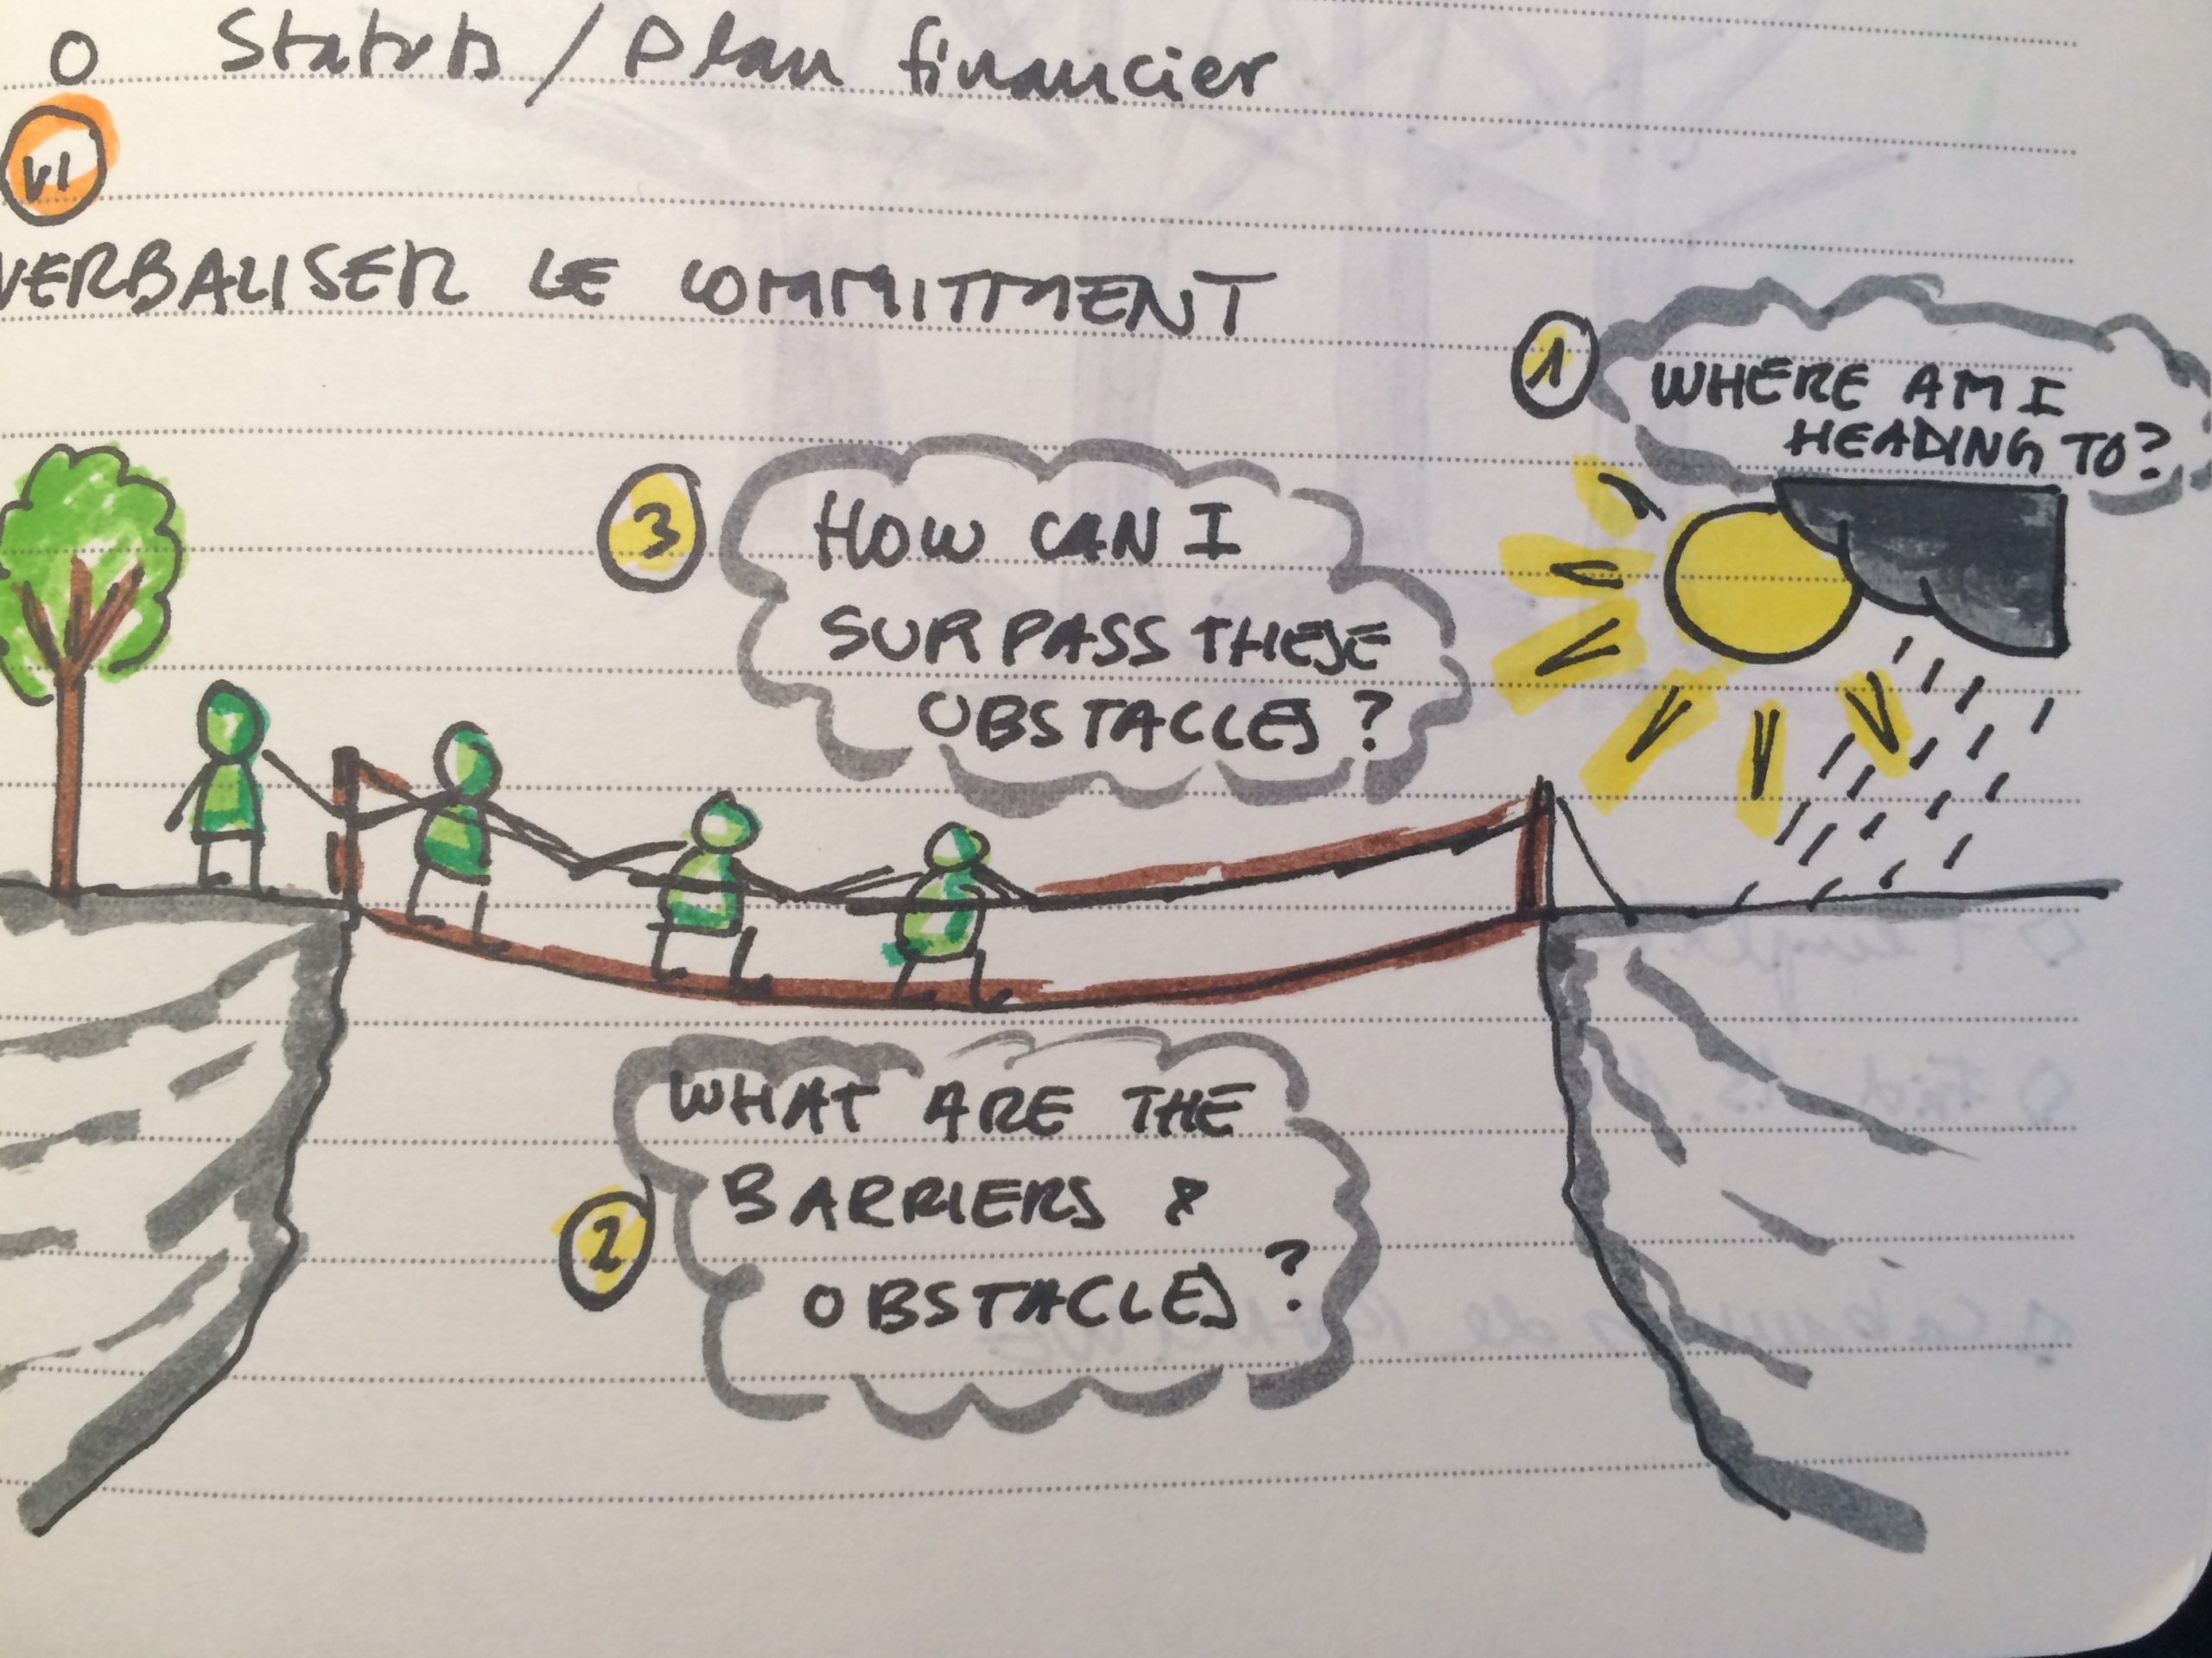 o Statuts / Plan financier
VI
VERBALISER LE COMMITMENT
1
WHERE AM I
HEADING TO?
3
HOW CAN I
SURPASS THESE
OBSTACLES?
WHAT ARE THE
BARRIERS &
2
OBSTACLES?